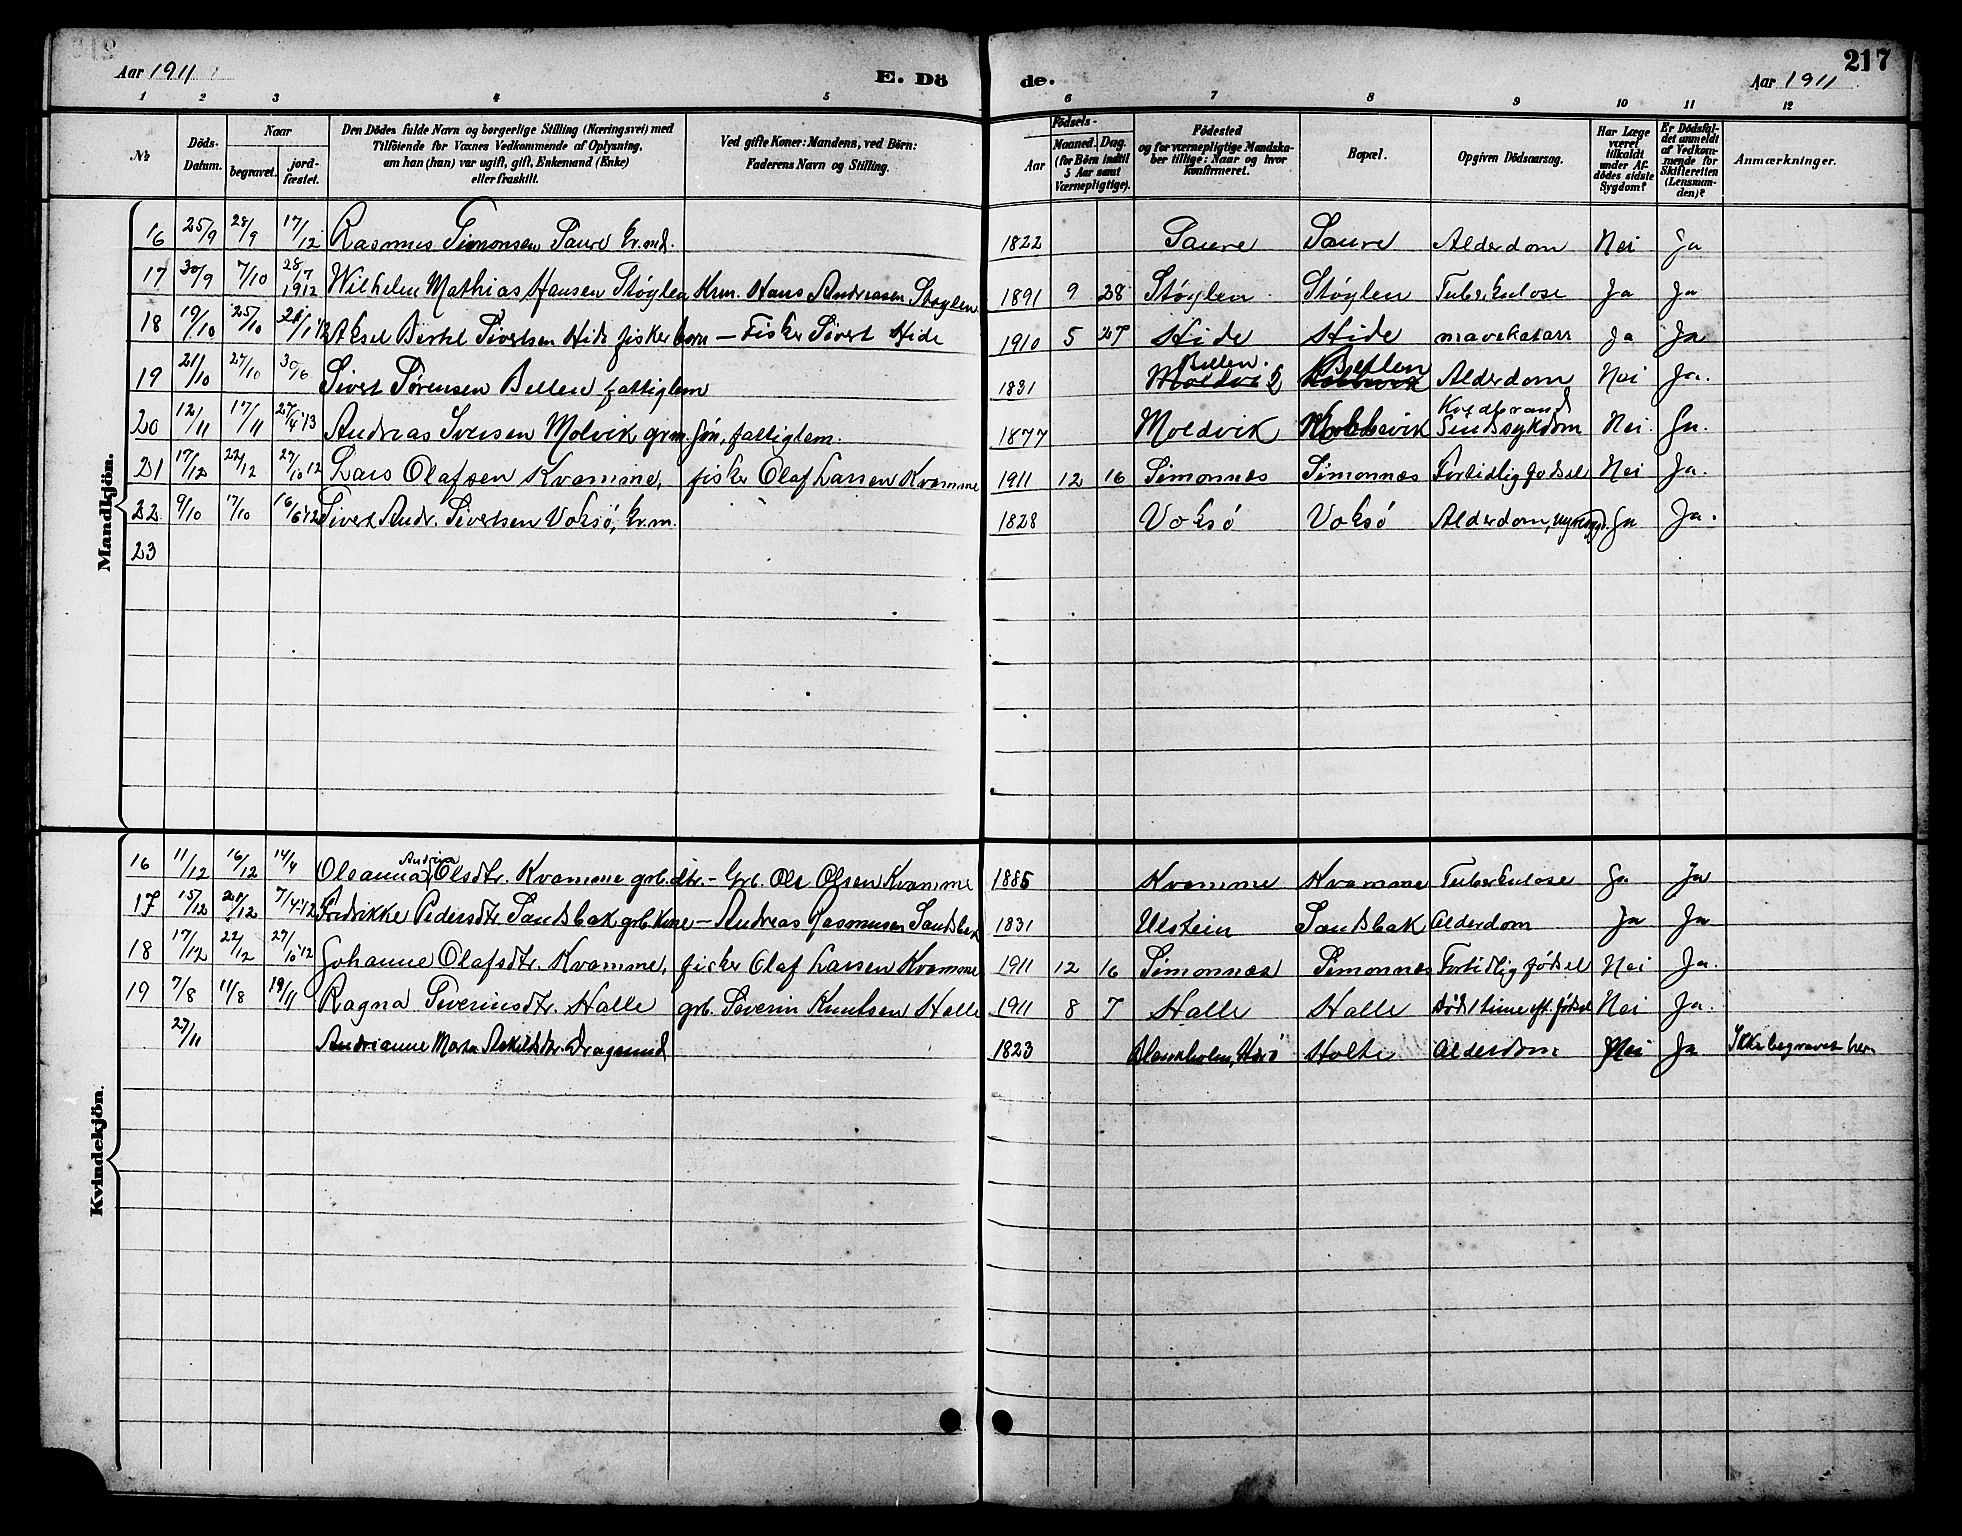 Aar 1911
E. Dö
de.
217
Aar 1911
1 2 3 4 5 6 7 8 9 10 11 12
№
Döds-Datum.
Naar
begravet.
jord-fæstet.
Den Dödes fulde Navn og borgerlige Stilling (Næringsvei) med
Tilföiende for Voxnes Vedkommende af Oplysning,
om han (hun) var ugift, gift, Enkemand (Enke)
eller fraskilt.
Ved gifte Koner: Mandens, ved Börn:
Faderens Navn og Stilling.
Födsels-
Aar
Maaned. Dag.
(for Börn indtil
5 Aar samt
Værnepligtige).
Födested
og for værnepligtige Mandska-
ber tillige: Naar og hvor
konfirmeret.
Bopæl.
Opgiven Dödsaarsag.
Har Læge
været
tilkaldt
under Af-
dödes sidste
Sygdom?
Er Dödsfal-
det anmeldt
af Vedkom-
mende for
Skifteretten
(Lensman-
den)?
Anmærkninger.
Mandkjön.
16 25/9 28/9 17/12 Rasmus Simonsen Saure kr.md. 1822 Saure Saure Alderdom Nei Ja
17 30/9 7/10 28/7 1912 Wilhelm Mathias Hansen Støylen Krm. Hans Andreasen Støylen 1891 9 28 Støylen Støylen Tuberkulose Ja Ja
18 19/10 25/10 Aksel Bertel Sivertsen Hide fisker barn – Fisker Sivert Hide 1910 5 27 Hide Hide mavekatarr Ja Ja
19 21/10 27/10 30/6 Sivert Sørensen Bellen fattiglem 1831 Bellen Alderdom Nei Ja.
20 12/11 17/11 27/4 13 Andreas Iversen Molvik grm. søn, fattiglem. 1877 Moldvik Moldevik Koldbrand Sindssykdom Nei Ja.
21 17/12 22/12 27/10 12 Lars Olafsen Kvamme, fisker Olaf Larsen Kvamme 1911 12 16 Simonnes Simonnes Fortidlig fødsel Nei Ja.
22 9/10 17/10 16/6 12 Sivert Andr. Sivertsen Voksø, kr.m. 1828 Voksø Voksø Alderdom, Ja Ja.
23
Kvindekjön.
16 11/12 16/12 14/4 Oleanna Andrina Olsdtr. Kvamme grb.dtr. – Grb. Ole Olsen Kvamme 1885 Kvamme Kvamme Tuberkulose Ja Ja
17 15/12 21/12 7/4 12 Fredrikke Pedersdtr Sandsbak grb. kone – Andreas Rasmusen Sandsbak 1831 Ulstein Sandsbak Alderdom Ja Ja
18 17/12 22/12 27/10 12 Johanne Olafsdtr. Kvamme, fisker Olaf Larsen Kvamme 1911 12 16 Simonnes Simonnes Fortidlig fødsel Nei Ja.
19 7/8 11/8 19/11 Ragna Severinsdtr. Halle grb. Severin Knutsen Halle 1911 8 7 Halle Halle Død 1 time eft. fødsel Nei Ja.
27/11 Andrianne Marta Askildsdtr. Dragsund 1823 Holte Alderdom Nei Ja Ikke begravet her